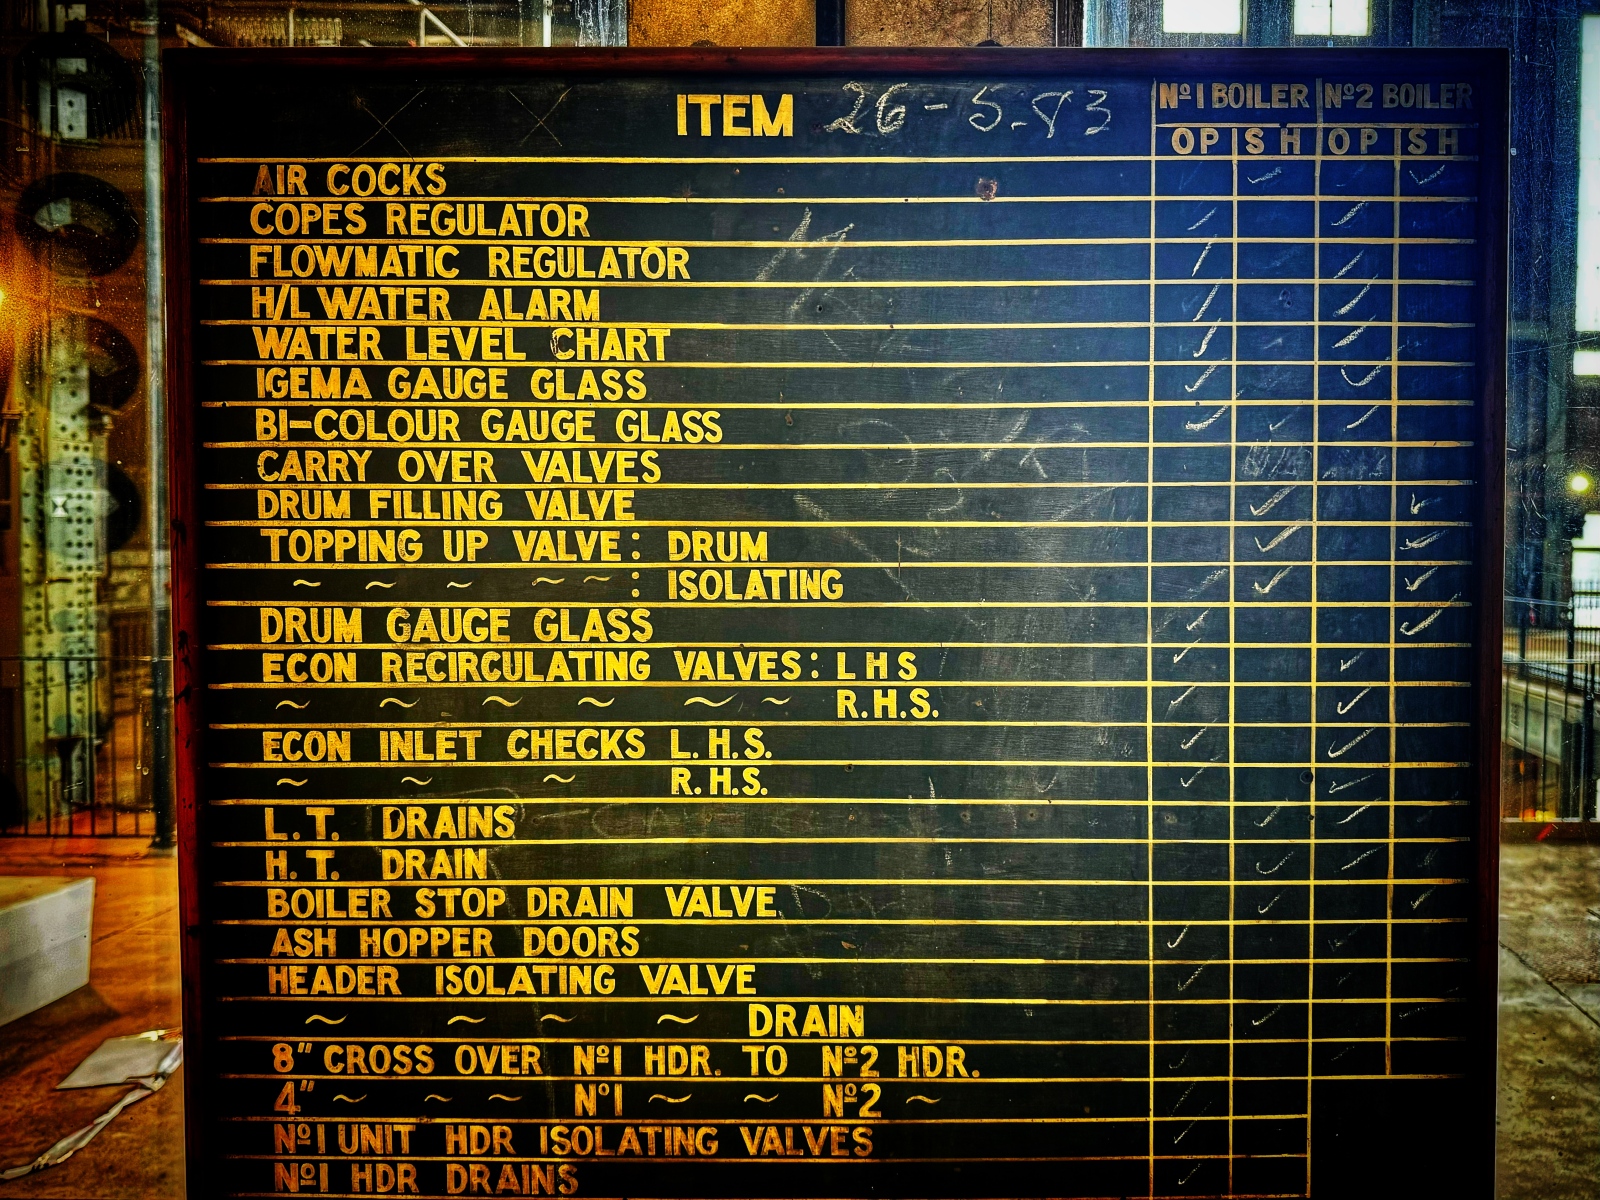 ITEM 26-5-83 Nº1 BOILER Nº2 BOILER
OP SH OP SH
AIR COCKS ✓ ✓
COPES REGULATOR ✓ ✓
FLOWMATIC REGULATOR ✓ ✓
H/L WATER ALARM ✓ ✓
WATER LEVEL CHART ✓ ✓
IGEMA GAUGE GLASS ✓ ✓
BI-COLOUR GAUGE GLASS ✓ ✓
CARRY OVER VALVES
DRUM FILLING VALVE ✓ ✓
TOPPING UP VALVE: DRUM ✓ ✓
~ ~ ~ ~ ~ : ISOLATING ✓ ✓
DRUM GAUGE GLASS ✓ ✓
ECON RECIRCULATING VALVES: L H S ✓ ✓
~ ~ ~ ~ ~ ~ R.H.S. ✓ ✓
ECON INLET CHECKS L.H.S. ✓ ✓
~ ~ ~ R.H.S. ✓ ✓
L.T. DRAINS ✓ ✓
H.T. DRAIN ✓ ✓
BOILER STOP DRAIN VALVE ✓ ✓
ASH HOPPER DOORS ✓
HEADER ISOLATING VALVE ✓
~ ~ ~ ~ DRAIN ✓
8" CROSS OVER Nº1 HDR. TO Nº2 HDR. ✓
4" ~ ~ ~ Nº1 ~ ~ Nº2 ~ ✓
Nº1 UNIT HDR ISOLATING VALVES ✓
Nº1 HDR DRAINS ✓